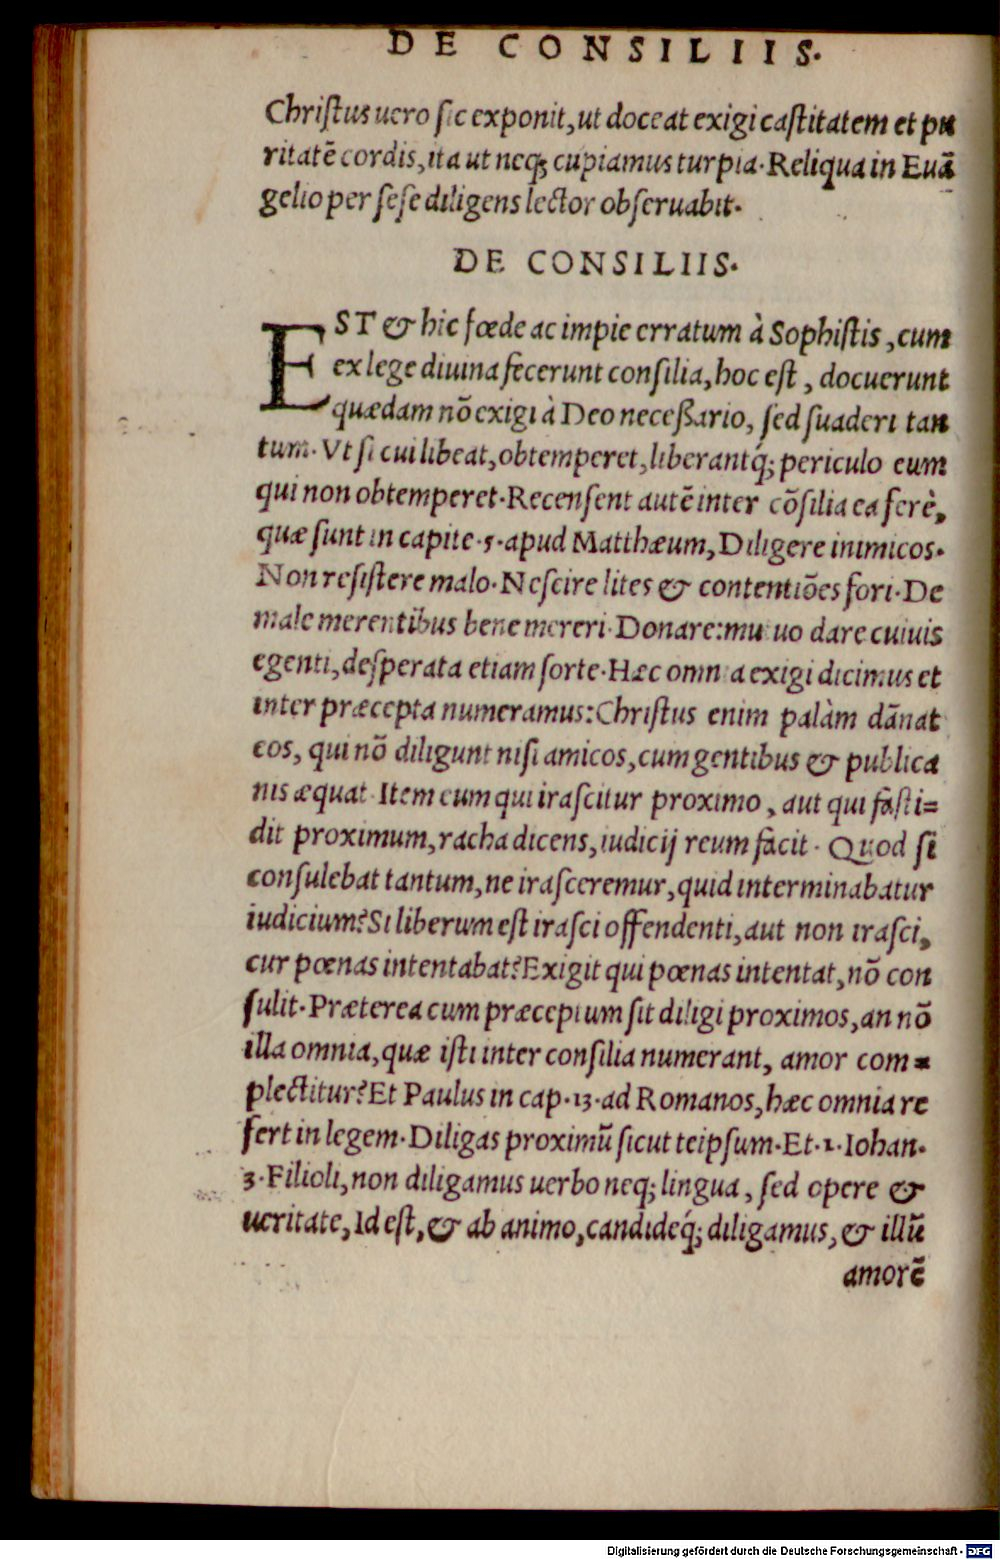 DE CONSILIIS.
Christus uero sic exponit, ut doceat exigi castitatem et pu
ritatē cordis, ita ut neq; cupiamus turpia. Reliqua in Euā
gelio per sese diligens lector obseruabit.
DE CONSILIIS.
EST & hic fœde ac impie erratum à Sophistis, cum
ex lege diuina fecerunt consilia, hoc est, docuerunt
quædam nō exigi à Deo necessario, sed suaderi tan
tum. Vt si cui libeat, obtemperet, liberantq́; periculo eum
qui non obtemperet. Recensent autē inter cōsilia ea ferè,
quæ sunt in capite .5. apud Matthæum, Diligere inimicos.
Non resistere malo. Nescire lites & contentiōes fori. De
male merentibus bene mereri. Donare: mutuo dare cuiuis
egenti, desperata etiam sorte. Hæc omnia exigi dicimus et
inter præcepta numeramus: Christus enim palàm dānat
eos, qui nō diligunt nisi amicos, cum gentibus & publica
nis æquat. Item eum qui irascitur proximo, aut qui fasti=
dit proximum, racha dicens, iudicij reum facit. Quod si
consulebat tantum, ne irasceremur, quid interminabatur
iudicium? Si liberum est irasci offendenti, aut non irasci,
cur pœnas intentabat? Exigit qui pœnas intentat, nō con
sulit. Præterea cum præceptum sit diligi proximos, an nō
illa omnia, quæ isti inter consilia numerant, amor com=
plectitur? Et Paulus in cap. 13. ad Romanos, hæc omnia re
fert in legem. Diligas proximū sicut teipsum. Et .1. Iohan.
3. Filioli, non diligamus uerbo neq; lingua, sed opere &
ueritate, Id est, & ab animo, candideq́; diligamus, & illū
amorē
Digitalisierung gefördert durch die Deutsche Forschungsgemeinschaft - DFG